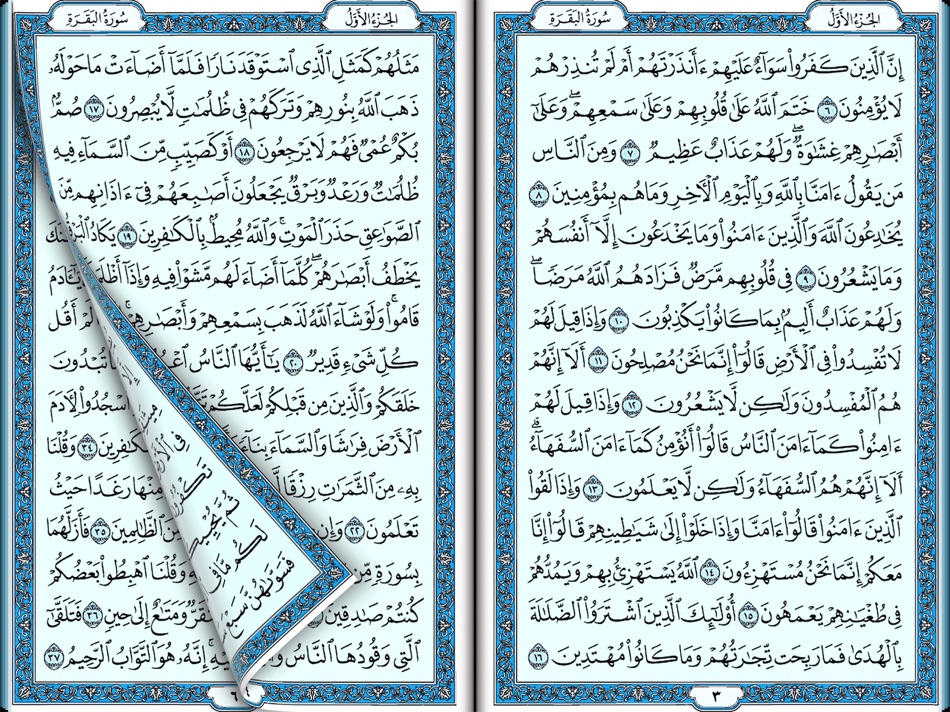 سُورَةُ البَقَرَةِ
الجُزءُ الأَوَّلُ
إِنَّ ٱلَّذِينَ كَفَرُوا۟ سَوَآءٌ عَلَيْهِمْ ءَأَنذَرْتَهُمْ أَمْ لَمْ تُنذِرْهُمْ
لَا يُؤْمِنُونَ ٦ خَتَمَ ٱللَّهُ عَلَىٰ قُلُوبِهِمْ وَعَلَىٰ سَمْعِهِمْ ۖ وَعَلَىٰٓ
أَبْصَٰرِهِمْ غِشَٰوَةٌ ۖ وَلَهُمْ عَذَابٌ عَظِيمٌ ٧ وَمِنَ ٱلنَّاسِ
مَن يَقُولُ ءَامَنَّا بِٱللَّهِ وَبِٱلْيَوْمِ ٱلْءَاخِرِ وَمَا هُم بِمُؤْمِنِينَ ٨
يُخَٰدِعُونَ ٱللَّهَ وَٱلَّذِينَ ءَامَنُوا۟ وَمَا يَخْدَعُونَ إِلَّآ أَنفُسَهُمْ
وَمَا يَشْعُرُونَ ٩ فِى قُلُوبِهِم مَّرَضٌ فَزَادَهُمُ ٱللَّهُ مَرَضًا ۖ
وَلَهُمْ عَذَابٌ أَلِيمٌۢ بِمَا كَانُوا۟ يَكْذِبُونَ ١٠ وَإِذَا قِيلَ لَهُمْ
لَا تُفْسِدُوا۟ فِى ٱلْأَرْضِ قَالُوٓا۟ إِنَّمَا نَحْنُ مُصْلِحُونَ ١١ أَلَآ إِنَّهُمْ
هُمُ ٱلْمُفْسِدُونَ وَلَٰكِن لَّا يَشْعُرُونَ ١٢ وَإِذَا قِيلَ لَهُمْ
ءَامِنُوا۟ كَمَآ ءَامَنَ ٱلنَّاسُ قَالُوٓا۟ أَنُؤْمِنُ كَمَآ ءَامَنَ ٱلسُّفَهَآءُ ۗ
أَلَآ إِنَّهُمْ هُمُ ٱلسُّفَهَآءُ وَلَٰكِن لَّا يَعْلَمُونَ ١٣ وَإِذَا لَقُوا۟
ٱلَّذِينَ ءَامَنُوا۟ قَالُوٓا۟ ءَامَنَّا وَإِذَا خَلَوْا۟ إِلَىٰ شَيَٰطِينِهِمْ قَالُوٓا۟ إِنَّا
مَعَكُمْ إِنَّمَا نَحْنُ مُسْتَهْزِءُونَ ١٤ ٱللَّهُ يَسْتَهْزِئُ بِهِمْ وَيَمُدُّهُمْ
فِى طُغْيَٰنِهِمْ يَعْمَهُونَ ١٥ أُو۟لَٰٓئِكَ ٱلَّذِينَ ٱشْتَرَوُا۟ ٱلضَّلَٰلَةَ
بِٱلْهُدَىٰ فَمَا رَبِحَت تِّجَٰرَتُهُمْ وَمَا كَانُوا۟ مُهْتَدِينَ ١٦
٣
الجُزءُ الأَوَّلُ
سُورَةُ البَقَرَةِ
مَثَلُهُمْ كَمَثَلِ ٱلَّذِى ٱسْتَوْقَدَ نَارًا فَلَمَّآ أَضَآءَتْ مَا حَوْلَهُۥ
ذَهَبَ ٱللَّهُ بِنُورِهِمْ وَتَرَكَهُمْ فِى ظُلُمَٰتٍ لَّا يُبْصِرُونَ ١٧ صُمٌّۢ
بُكْمٌ عُمْىٌ فَهُمْ لَا يَرْجِعُونَ ١٨ أَوْ كَصَيِّبٍ مِّنَ ٱلسَّمَآءِ فِيهِ
ظُلُمَٰتٌ وَرَعْدٌ وَبَرْقٌ يَجْعَلُونَ أَصَٰبِعَهُمْ فِىٓ ءَاذَانِهِم مِّنَ
ٱلصَّوَٰعِقِ حَذَرَ ٱلْمَوْتِ ۚ وَٱللَّهُ مُحِيطٌۢ بِٱلْكَٰفِرِينَ ١٩ يَكَادُ ٱلْبَرْقُ
يَخْطَفُ أَبْصَٰرَهُمْ ۖ كُلَّمَآ أَضَآءَ لَهُم مَّشَوْا۟ فِيهِ وَإِذَآ
قَامُوا۟ ۚ وَلَوْ شَآءَ ٱللَّهُ لَذَهَبَ بِسَمْعِهِمْ وَأَبْصَٰرِهِمْ أَقُل
كُلِّ شَىْءٍ قَدِيرٌ ٢٠ يَٰٓأَيُّهَا ٱلنَّاسُ تُبْدُونَ
خَلَقَكُمْ وَٱلَّذِينَ مِن قَبْلِكُمْ لَعَلَّكُمْ ٱسْجُدُوا۟ لِءَادَمَ
ٱلْأَرْضَ فِرَٰشًا وَٱلسَّمَآءَ بِنَآءً ٱلْكَٰفِرِينَ ٣٤ وَقُلْنَا
بِهِۦ مِنَ ٱلثَّمَرَٰتِ رِزْقًا مِنْهَا رَغَدًا حَيْثُ
تَعْلَمُونَ ٢٢ وَإِن ٱلظَّٰلِمِينَ ٣٥ فَأَزَلَّهُمَا
بِسُورَةٍ مِّن وَقُلْنَا ٱهْبِطُوا۟ بَعْضُكُمْ
كُنتُمْ صَٰدِقِينَ وَمَتَٰعٌ إِلَىٰ حِينٍ ٣٦ فَتَلَقَّىٰٓ
ٱلَّتِى وَقُودُهَا ٱلنَّاسُ إِنَّهُۥ هُوَ ٱلتَّوَّابُ ٱلرَّحِيمُ ٣٧
٦